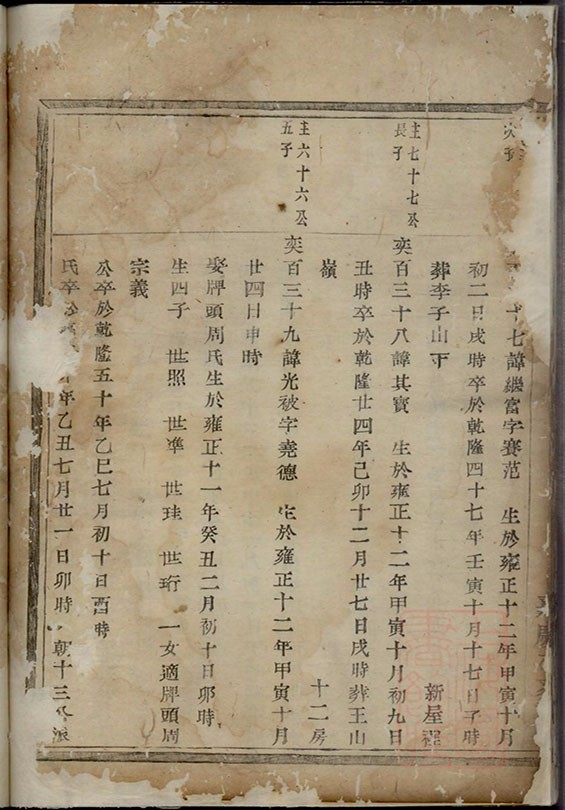 次子
十七諱繼富字賽范　生於雍正十二年甲寅十月
初二日戌時卒於乾隆四十七年壬寅十月十七日子時
葬李子山下　新屋
圭七十七公
長子
奕百三十八諱其寳　生於雍正十二年甲寅十月初九日
丑時卒於乾隆廿四年己卯十二月廿七日戌時葬王山
嶺　十二房
圭六十六公
五子
奕百三十九諱光被字堯德　生於雍正十二年甲寅十月
廿四日申時
娶牌頭周氏生於雍正十一年癸丑二月初十日卯時
生四子　世照　世準　世珪　世珩　一女適牌頭周
宗義
公卒於乾隆五十年乙巳七月初十日酉時
氏卒於年乙丑七月廿一日卯時　朝十三公派